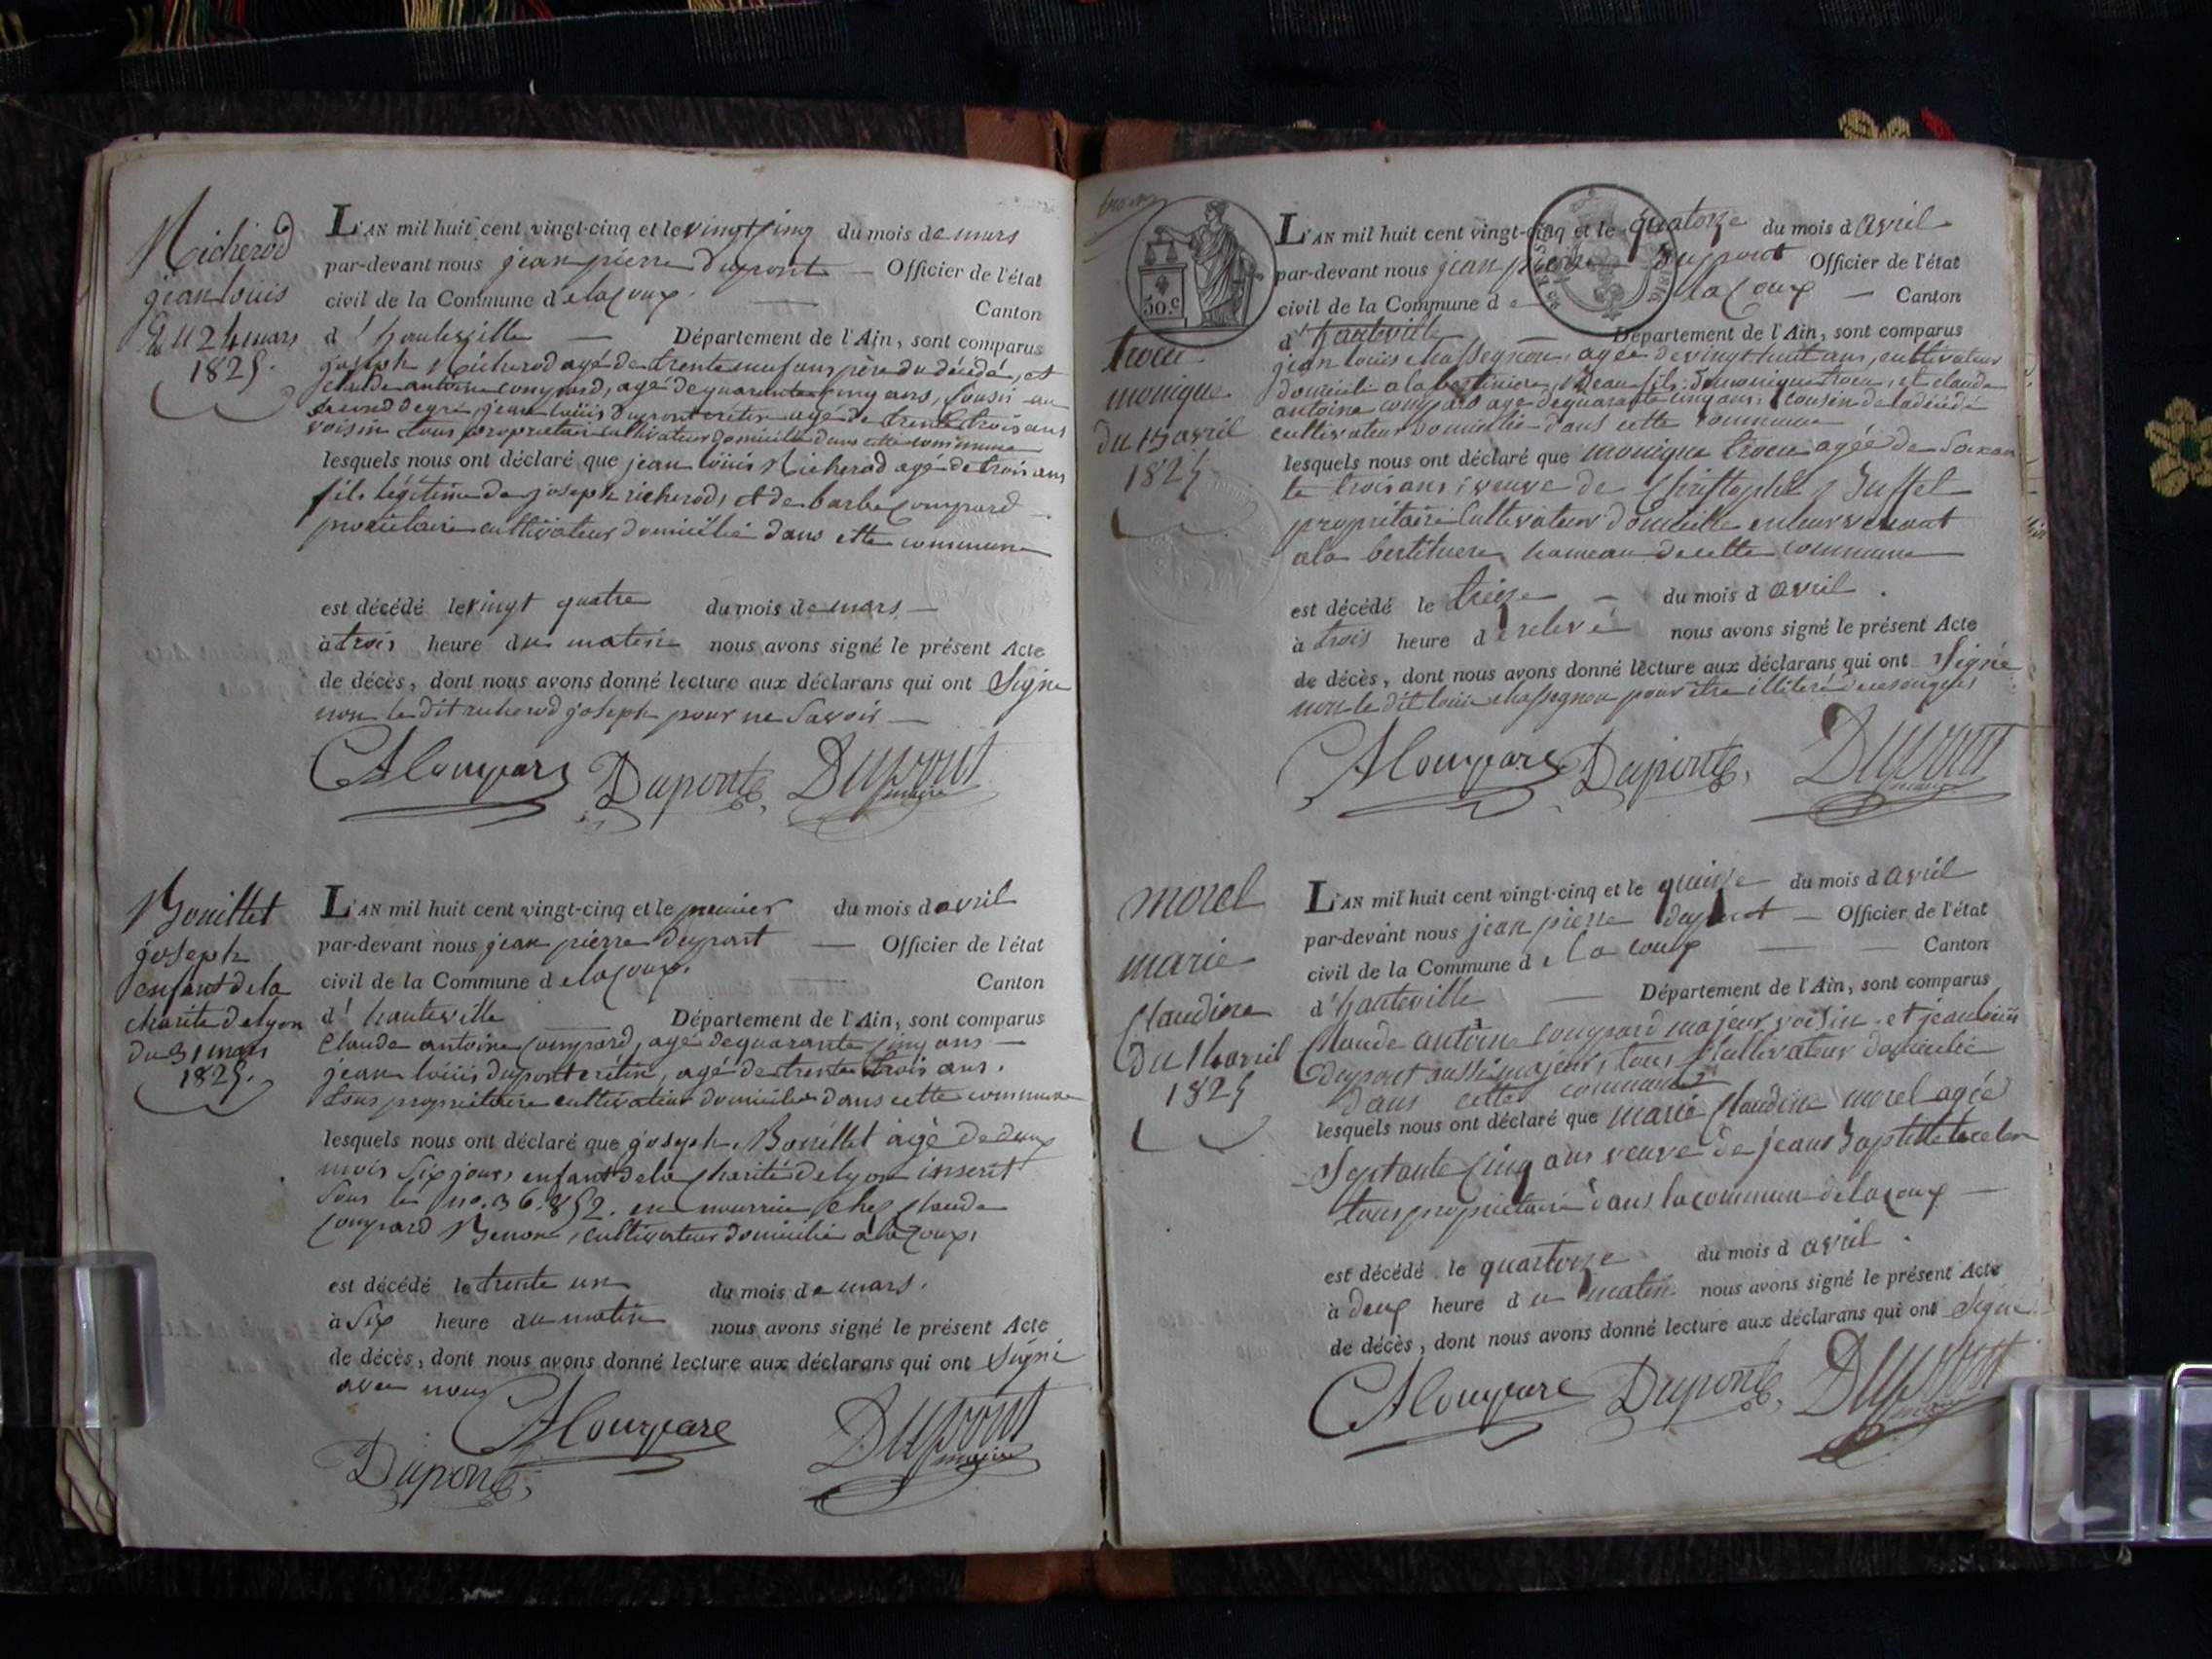 Richerod
jean louis
du 24 mars
1825.
L'AN mil huit cent vingt-cinq et le vingt cinq du mois de mars
par-devant nous jean pierre dupont — Officier de l'état
civil de la Commune d elacoux. — Canton
d'hauteville — Département de l'Ain, sont comparus
joseph Richerod agé de trente neuf ans père du décédé, et
claude antoine compard, agé de quarante cinq ans, cousin au
second degré, jean louis dupont crétin agé de trente trois ans
voisin tous proprietaire cultivateur domicilié dans cette commune
lesquels nous ont déclaré que jean louis Richerod agé de trois ans
fils légitime de joseph richerod, et de barbe compard
propriétaire cultivateur domicilié dans cette commune
est décédé le vingt quatre du mois de mars —
à trois heure du matin nous avons signé le présent Acte
de décès, dont nous avons donné lecture aux déclarans qui ont Signé
non le dit richerod joseph pour ne Savoir —
Dupont Dupont
maire
Bouillet
joseph
enfant de la
charité de lyon
du 31 mars
1825.
L'AN mil huit cent vingt-cinq et le premier du mois d avril
par-devant nous jean pierre dupont — Officier de l'état
civil de la Commune d elacoux. — Canton
d'hauteville Département de l'Ain, sont comparus
Claude antoine Compard, agé de quarante cinq ans —
jean louis dupont crétin, agé de trente trois ans.
tous proprietaire cultivateur domicilié dans cette commune
lesquels nous ont déclaré que joseph Bouillet agé de deux
mois six jours, enfant de la Charité de lyon inscrit
Sous le no. 36.852. en nourrice chez claude
Compard cultivateur domicilié à lacoux,
est décédé le trente un du mois de mars.
à Six heure du matin nous avons signé le présent Acte
de décès, dont nous avons donné lecture aux déclarans qui ont Signé
avec nous
Dupont Dupont
maire
50.c
trocu
monique
du 13 avril
1825
L'AN mil huit cent vingt-cinq et le quatorze du mois d avril
par-devant nous jean pierre dupont Officier de l'état
civil de la Commune d e lacoux — Canton
d'hauteville — Département de l'Ain, sont comparus
jean louis chassegnon, agée de vingt huit ans, cultivateur
domicilié a la beau fils monique trocu, et claude
antoine compard agé de quarante cinq ans, cousin de la décédé
cultivateur domicilié dans cette commune
lesquels nous ont déclaré que monique trocu agée de soixan
te trois ans veuve de Christophe Buffet
proprietaire Cultivateur domicilié
a la hameau de cette commune
est décédé le treize — du mois d avril.
à trois heure d e relevé nous avons signé le présent Acte
de décès, dont nous avons donné lecture aux déclarans qui ont Signé
non le dit louis chassegnon pour être illitéré de ce enquis
Dupont Dupont
maire
morel
marie
Claudine
Du 14 avril
1825
L'AN mil huit cent vingt-cinq et le quinze du mois d avril
par-devant nous jean pierre dupont — Officier de l'état
civil de la Commune d e la coux — Canton
d'hauteville — Département de l'Ain, sont comparus
Claude antoine compard majeur, voisin, et jean louis
dupont aussi majeur, tous cultivateur domicilié
dans cette commune
lesquels nous ont déclaré que marie Claudine morel agée
Septante Cinq ans veuve de jean Baptiste
tous proprietaire dans la commune de lacoux —
est décédé le quartorze du mois d avril.
à deux heure d u matin nous avons signé le présent Acte
de décès, dont nous avons donné lecture aux déclarans qui ont Signé
Dupont Dupont
maire